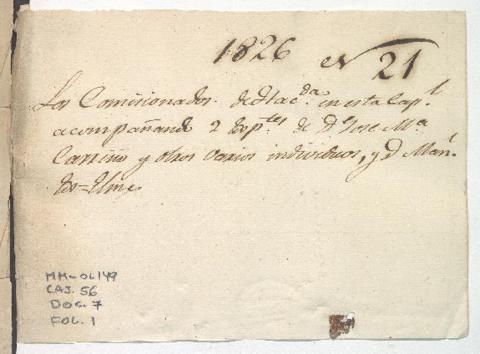 1826 N 21
Los Comicionados de Hacda. en esta Capl.
acompañando 2 de Dn Jose Ma
Carriño y otros varios individuos, y d Manl.
MM-04149
CAJ. 56
DOC. 7
FOL. 1